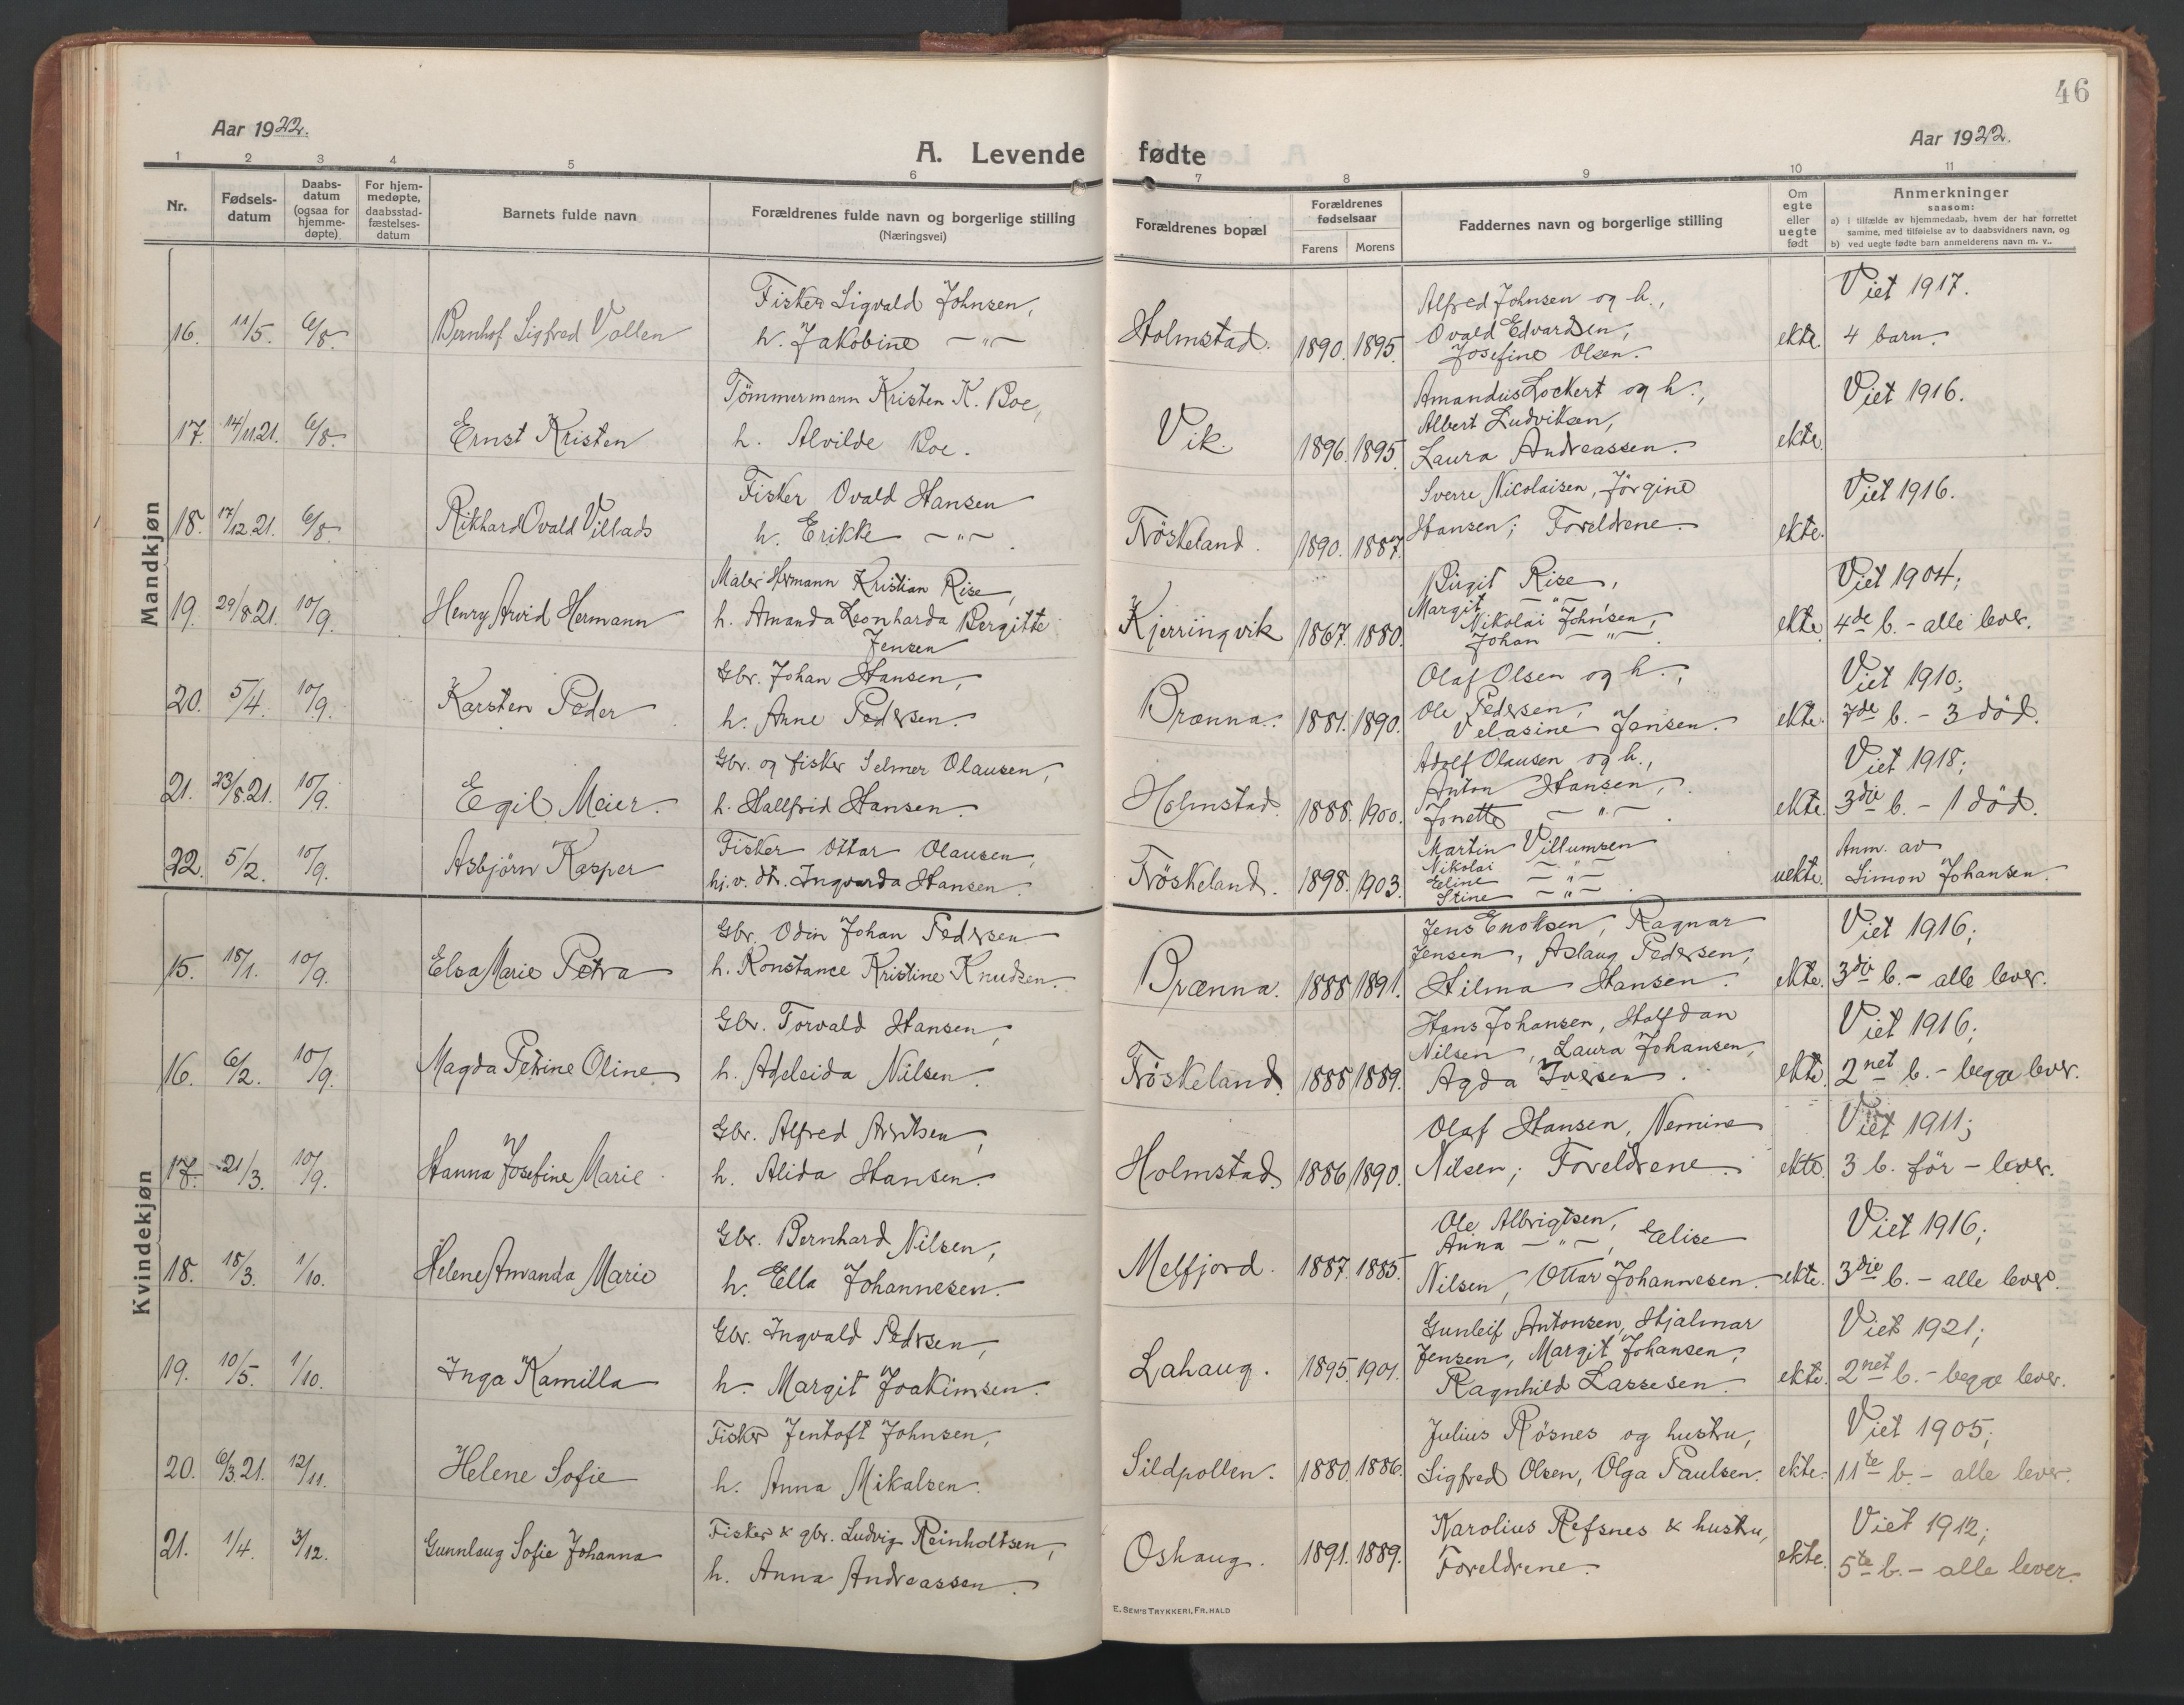 46
Aar 1922.
A. Levende fødte
Aar 1922.
1 2 3 4 5 6 7 8 9 10 11
Nr.
Fødsels-
datum
Daabs-
datum
(ogsaa for
hjemme-
døpte)
For hjem-
medøpte,
daabsstad-
fæstelses-
datum
Barnets fulde navn
Forældrenes fulde navn og borgerlige stilling
(Næringsvei)
Forældrenes bopæl
Forældrenes
fødselsaar
Farens Morens
Faddernes navn og borgerlige stilling
Om
egte
eller
uegte
født
Anmerkninger
saasom:
a) i tilfælde av hjemmedaab, hvem der har forrettet
samme, med tilføielse av to daabsvidners navn, og
b) ved uegte fødte barn anmelderens navn m. v..
Mandkjøn
16. 11/5. 6/8. Bernhof Sigfred Vollen
Fisker Sigvald Johnsen,
h. Jakobine — " —
Holmstad. 1890. 1895.
Alfred Johnsen og h.,
Ovald Edvardsen,
Josefine Olsen.
ekte.
Viet 1917.
4 barn.
17. 14/11.21. 6/8. Ernst Kristen
Tömmermann Kristen K. Boe,
h. Alvilde Boe.
Vik. 1896. 1895.
Amandus Lockert og h.,
Albert Ludviksen,
Laura Andreassen.
ekte.
Viet 1916.
18. 17/12.21. 6/8. Rikhard Ovald Villads
Fisker Ovald Hansen
h. Erikke — " — .
Fröskeland. 1890. 1887.
Sverre Nicolaisen, Jörgine
Hansen; Foreldrene.
ekte.
Viet 1916.
19. 29/8.21. 10/9. Henry Arvid Hermann
Maler Hermann Kristian Rise,
h. Amanda Leonharda Bergitte
Jensen
Kjerringvik 1867. 1880.
Birgit Rise,
Margit — " —
Nikolai Johnsen,
Johan — " — .
ekte.
Viet 1904;
4de b. - alle lever.
20. 5/4. 10/9. Karsten Peder
Gbr. Johan Hansen,
h. Anne Pedersen.
Brænna. 1881. 1890.
Olaf Olsen og h.,
Ole Pedersen,
Velasine Jensen.
ekte.
Viet 1910;
7de b. - 3 död.
21. 23/8.21. 10/9. Egil Meier.
Gbr. og fisker Selmer Olausen,
h. Hallfrid Hansen.
Holmstad. 1888. 1900.
Adolf Olausen og h.,
Anton Hansen,
Jonette — " — .
ekte.
Viet 1918;
3die b. - 1 död.
22. 5/2. 10/9. Asbjörn Kasper
Fisker Ottar Olausen,
hj.v. dtr. Ingvarda Hansen.
Fröskeland. 1898. 1903.
Martin Villumsen
Nikolai — " —
Eeline — " —
Stine — " — .
uekte.
Anm. av
Simon Johansen.
Kvindekjøn
15. 18/1. 10/9. Elsa Marie Petra
Gbr. Odin Johan Pedersen
h. Konstance Kristine Knudsen.
Brænna. 1888 1891.
Jens Enoksen, Ragnar
Jensen, Aslaug Pedersen,
Hilma Hansen.
ekte.
Viet 1916;
3die b. - alle lever.
16. 6/2. 10/9. Magda Petrine Oline
Gbr. Torvald Hansen,
h. Adeleida Nilsen.
Fröskeland. 1888 1889.
Hans Johansen, Halfdan
Nilsen, Laura Johansen,
Agda Iversen.
ekte.
Viet 1916;
2net b. - begge lever.
17. 21/3. 10/9. Hanna Josefine Marie.
Gbr. Alfred Arntsen,
h. Alida Hansen.
Holmstad. 1886 1890.
Olaf Hansen, Nemine
Nilsen; Foreldrene.
ekte.
Viet 1911;
3 b. för - lever.
18. 18/3. 1/10. Helene Amanda Marie
Gbr. Bernhard Nilsen,
h. Ella Johannesen.
Melfjord. 1887. 1885.
Ole Albrigtsen,
Anna — " —, Eelise
Nilsen, Ottar Johannesen.
ekte.
Viet 1916;
3die b. - alle lever.
19. 10/5. 1/10. Inga Kamilla
Gbr. Ingvald Pedersen,
h. Margit Joakimsen.
Lahaug. 1895. 1901.
Gunleif Antonsen, Hjalmar
Jensen, Margit Johansen,
Ragnhild Lassesen.
ekte.
Viet 1921;
2net b. - begge lever.
20. 6/3.21. 12/11. Helene Sofie
Fisker Jentoft Johnsen,
h. Anna Mikalsen.
Sildpollen. 1880. 1886.
Julius Rösnes og hustru,
Sigfred Olsen, Olga Paulsen.
ekte.
Viet 1905;
11te b. - alle lever.
21. 1/4. 3/12. Gunnlaug Sofie Johanna
Fisker & gbr. Ludvig Reinholtsen,
h. Anna Andreassen.
Oshaug. 1891. 1889.
Karolius Refsnes & hustru,
Foreldrene.
ekte.
Viet 1912;
5te b. - alle lever.
E. SEM'S TRYKKERI, FR.HALD